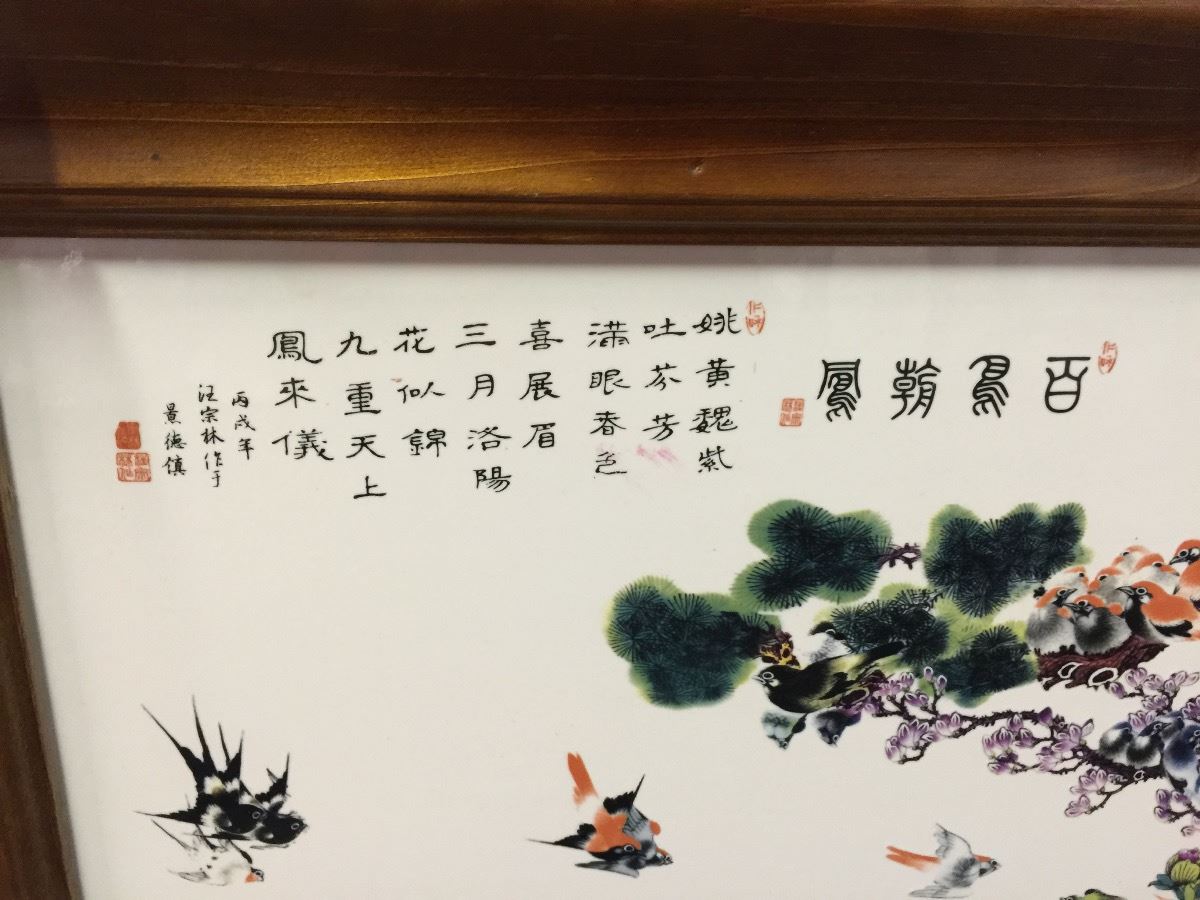 百鳥朝鳳
姚黃魏紫
吐芬芳
滿眼春色
喜展眉
三月洛陽
花似錦
九重天上
鳳來儀
丙戌年
汪宗林作于
景德鎮